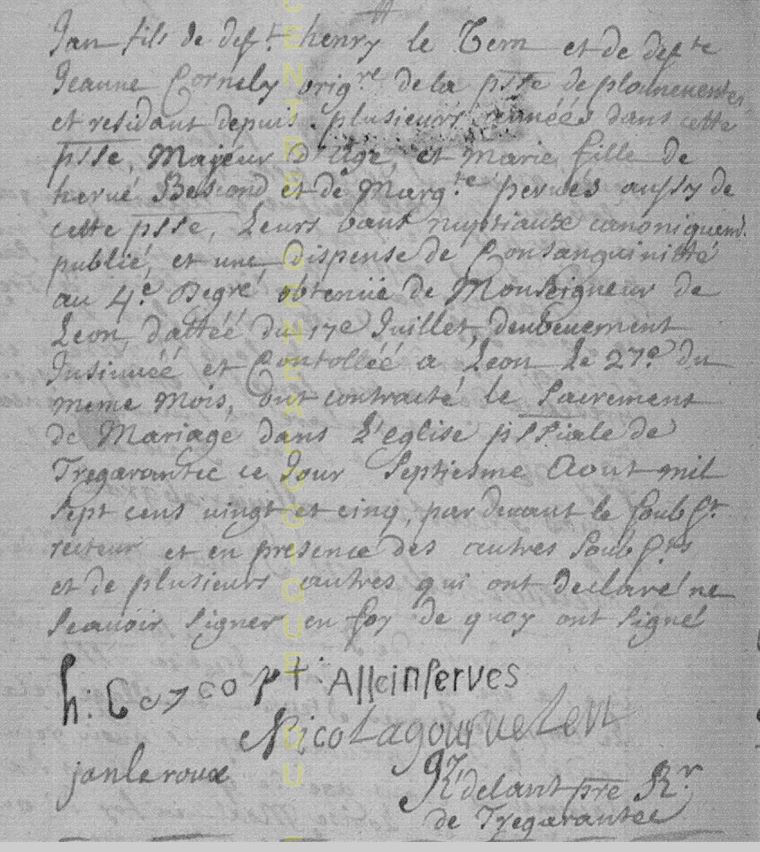 Jan fils de deft henry le Tern et de defte
Jeanne Cornely origre de la psse de plounevente
et residant depuis plusieurs années dans cette
psse, Majeur D'age, et Marie fille de
hervé Bescond et de Margte pervés aussy de
cette psse, Leurs bans nuptiaux canoniquemt
publié, et une Dispense de Consanguinitté
au 4e Degre obtenüe de Monseigneur de
Leon dattéé du 17e Juillet, deubeument
Insinuéé et Controlléé a Leon Le 27e du
meme Mois, ont contracté le Sacrement
de Mariage dans L'eglise pssiale de
Tregarantec ce Jour Septiesme Aout mil
sept cens vingt et cinq, par devant le soubsst
recteur et en presence des autres soubssts
et de plusieurs autres qui ont declaré ne
scavoir signer en foy de quoy ont signé
h: Corco pt: Allein serves
Nicola
jan le roux
de Tregarantec